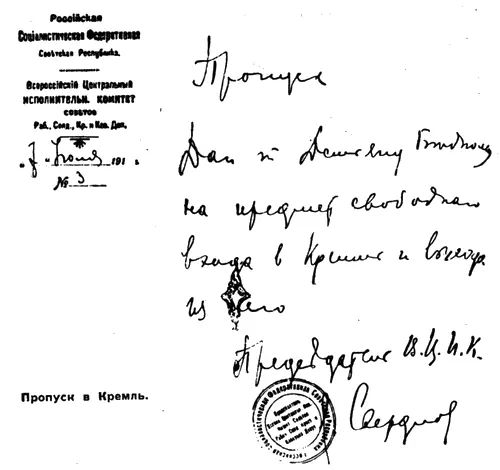 Россійская
Соціалистическая Федеративная
Советская Республика.
Всероссійскій Центральный
ИСПОЛНИТЕЛЬН. КОМИТЕТ
СОВЕТОВ
Раб., Солд., Кр. и Каз. Деп.
191 г.
№ 3
Пропуск
Дан т. Демьяну Бедному
на предмет свободнаго
входа в Кремль и выхода
из него
Председатель В.Ц.И.К.
Свердлов
Пропуск в Кремль.